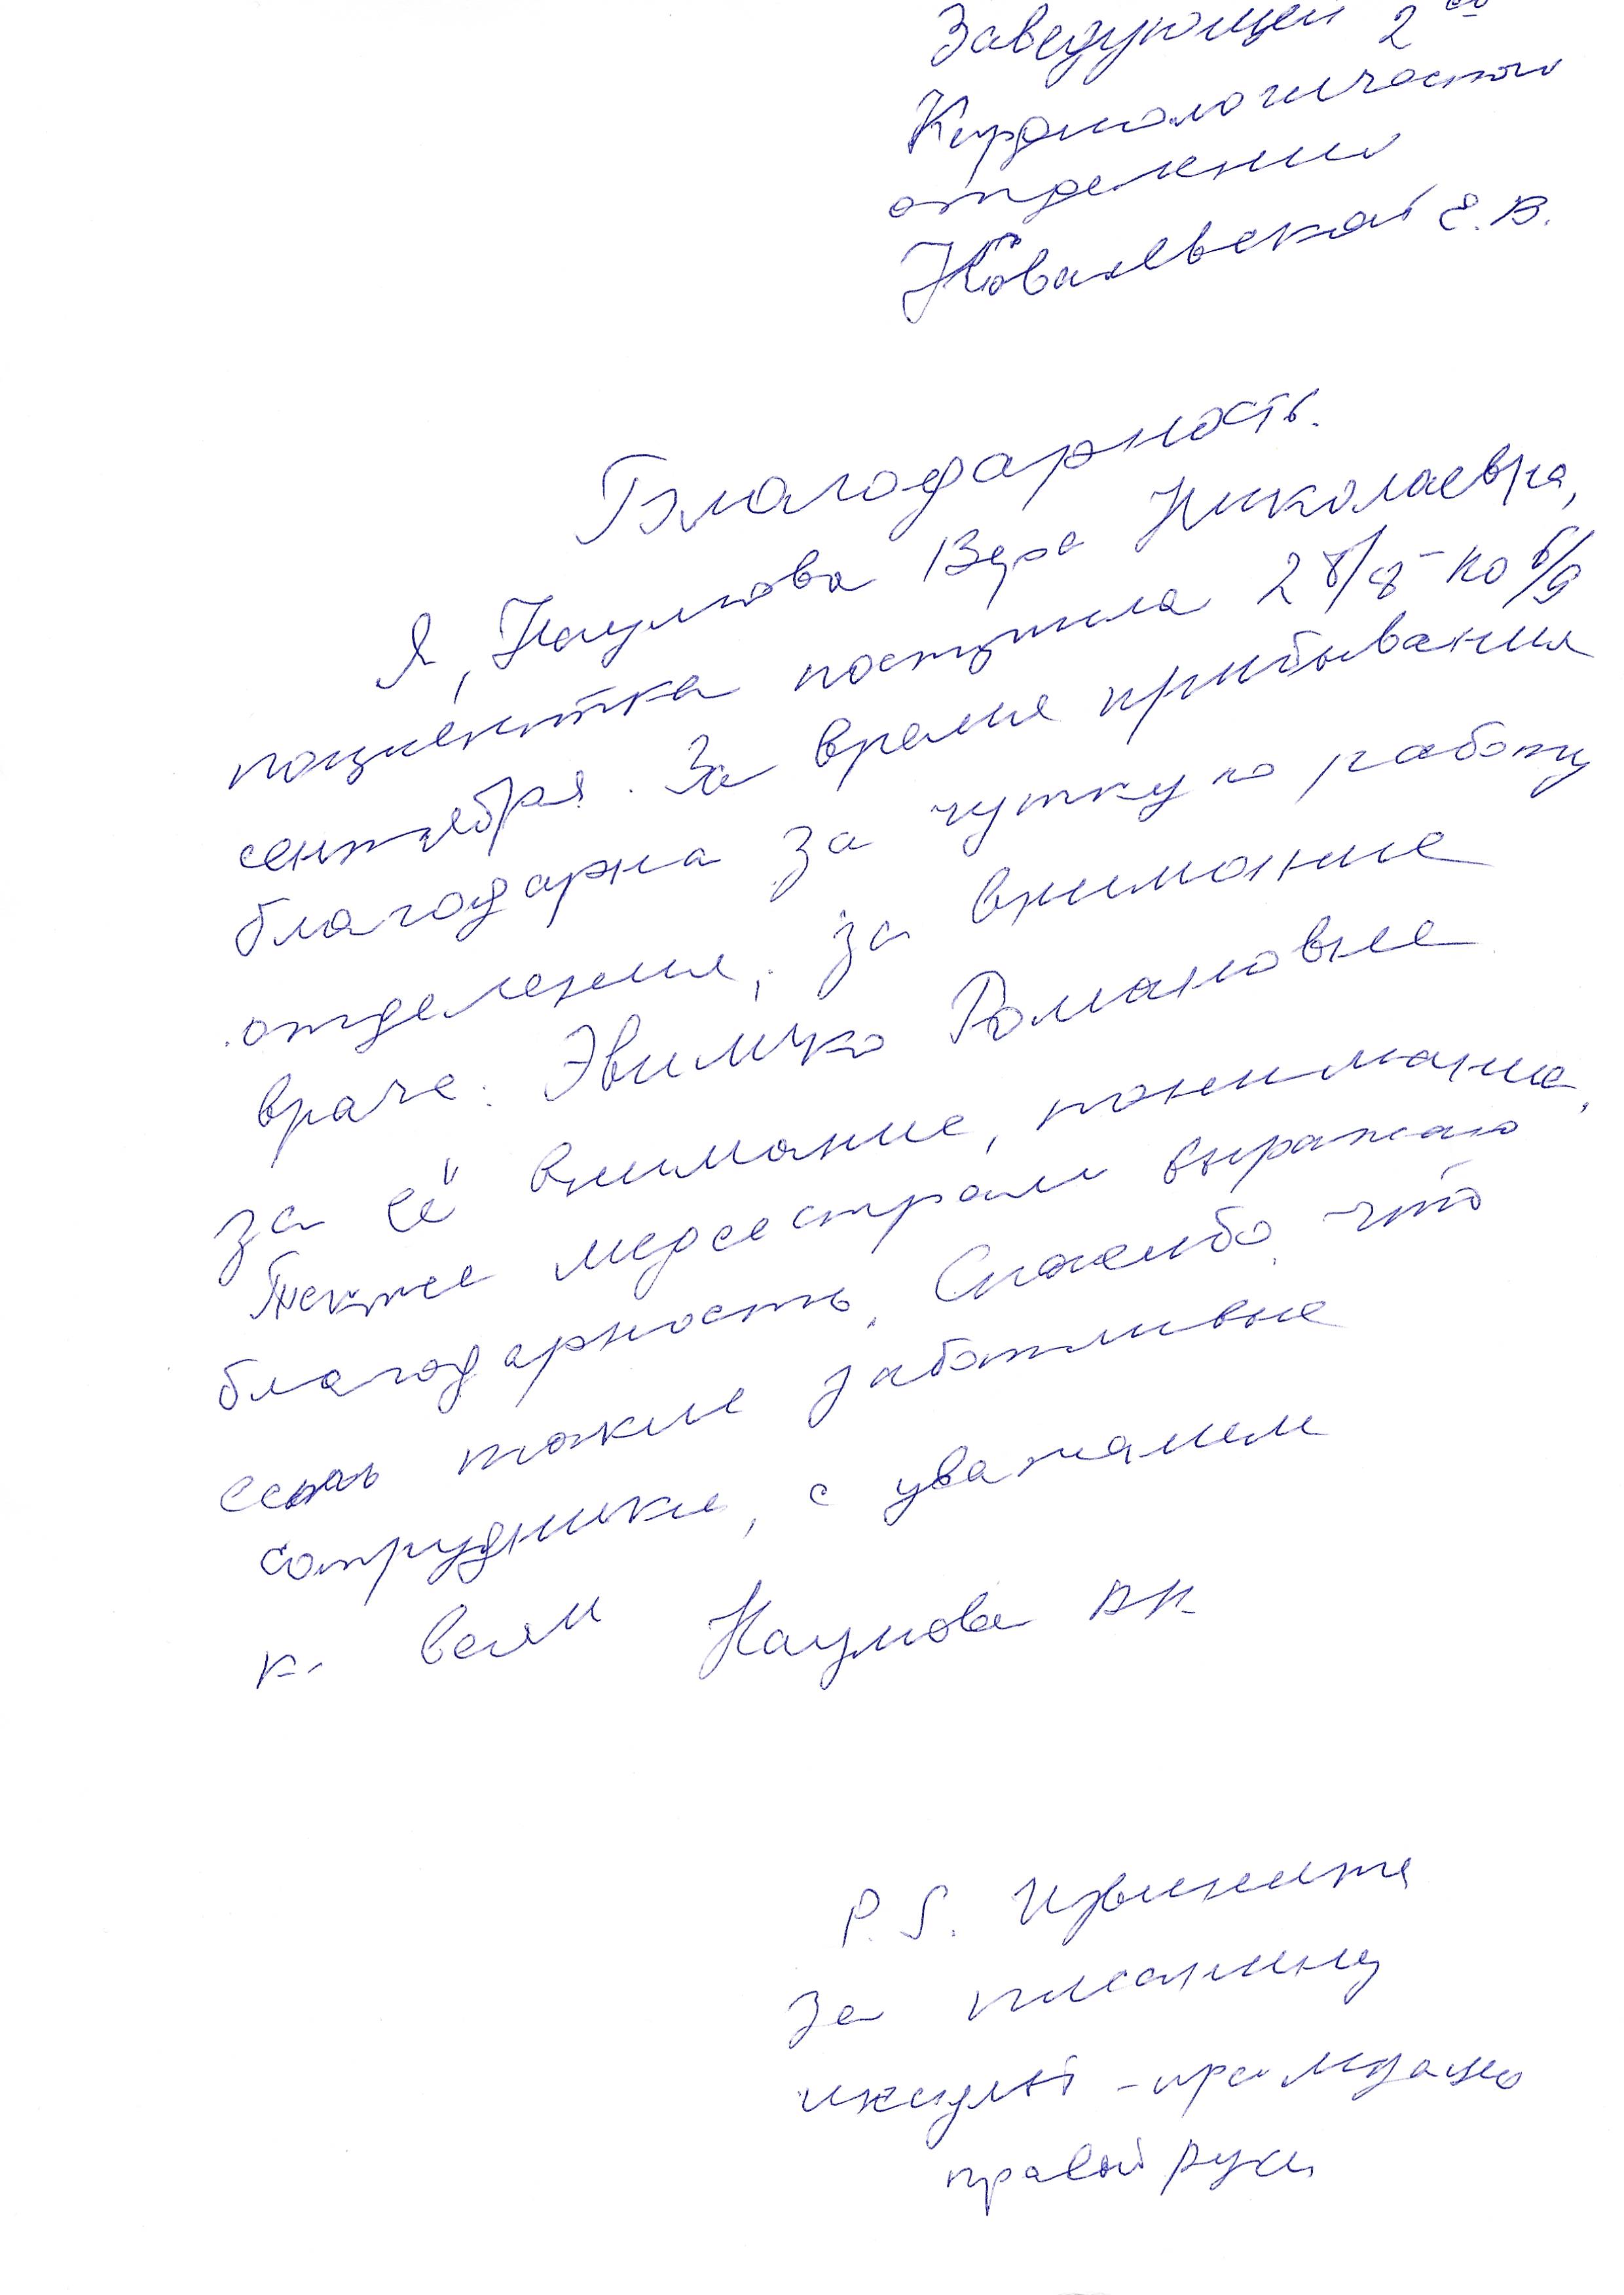 Заведующей 2ой
Кардиологической
отделении
Ковалевской Е.В.
Благодарность.
Я, Наумова Вера Николаевна,
пациентка поступила 28/8 - по 6/9
сентября. За время прибывания
благодарна за чуткую работу
отделения, за внимание
враче: Романовне
за её внимание, понимание,
Также медсестрам выражаю
благодарность. Спасибо, что
есть такие заботливые
сотрудники, с уважением
к всем Наумова ВН
P.S. Извините
за писанину
инсульт -
правой руки